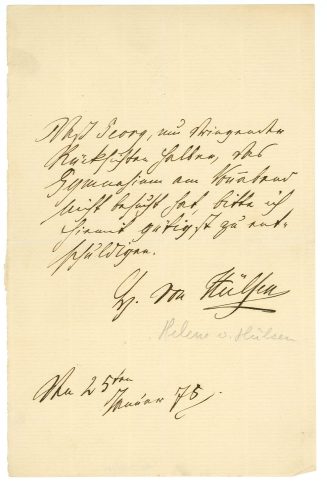 Daß Georg, aus dringenden
Rücksichten halber, das
Gymnasium am Sonnabend
nicht besucht hat, bitte ich
hiermit gütigst zu ent-
schuldigen.
von Hülsen
Helene v. Hülsen
25ten
Januar 75.